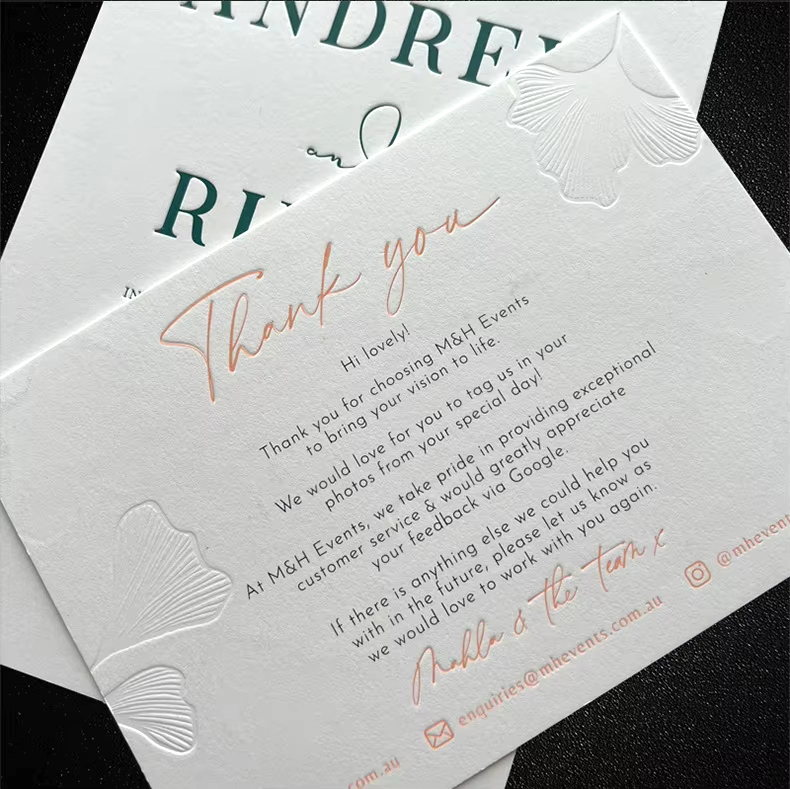 and
Thank you
Hi lovely!
Thank you for choosing M&H Events
to bring your vision to life.
We would love for you to tag us in your
photos from your special day!
At M&H Events, we take pride in providing exceptional
customer service & would greatly appreciate
your feedback via Google.
If there is anything else we could help you
with in the future, please let us know as
we would love to work with you again.
Mahla & the team x
@mhevents
enquiries@mhevents.com.au
.com.au